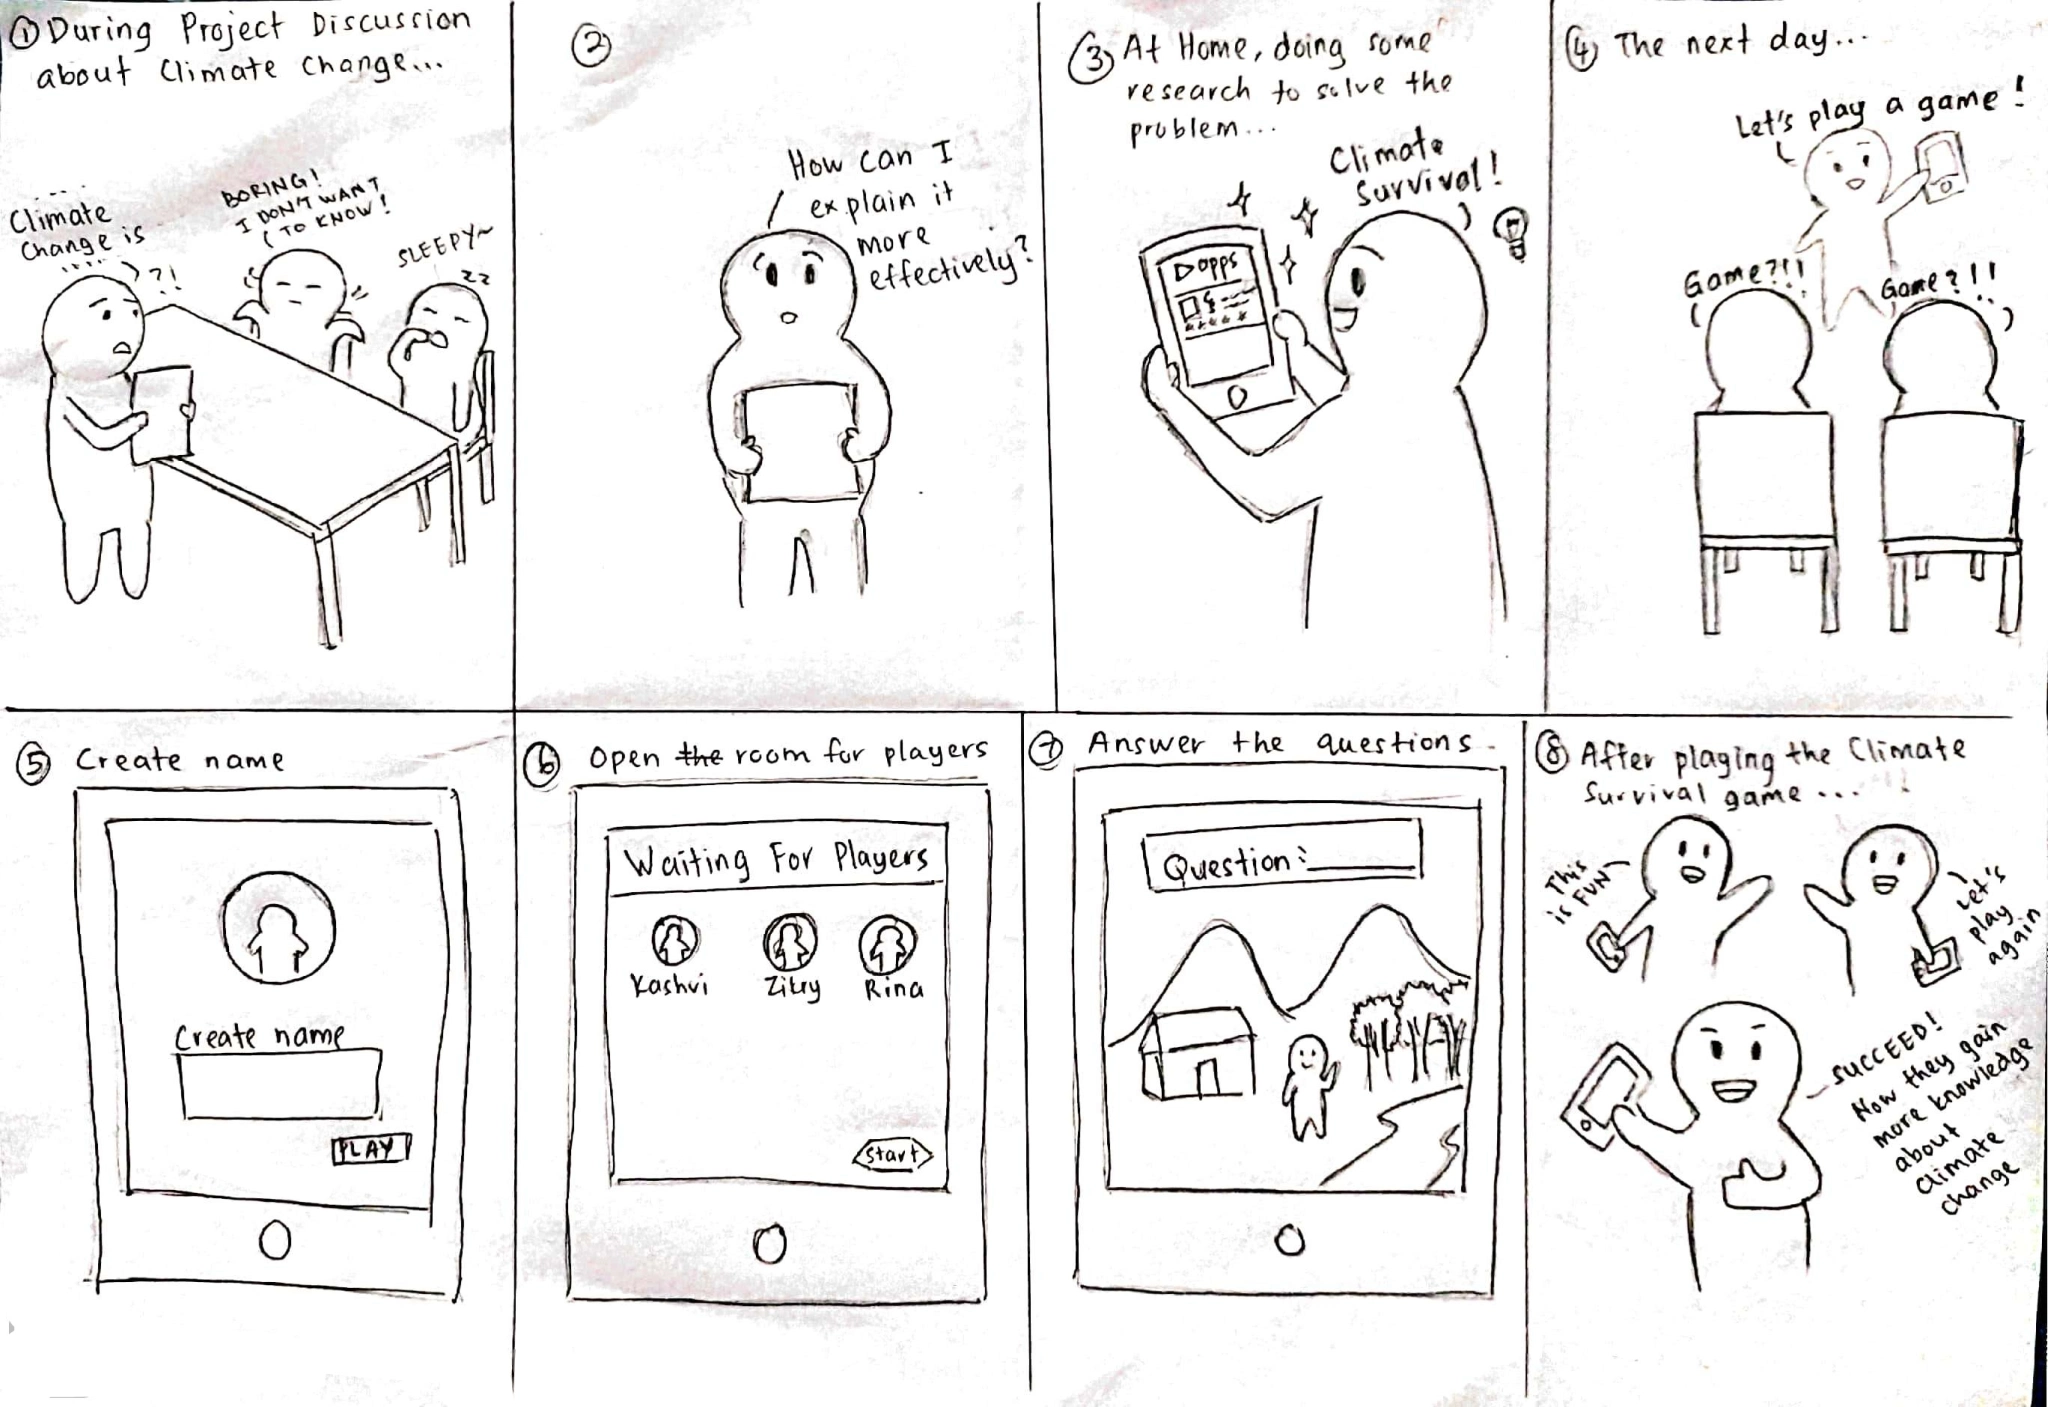 ① During Project Discussion
about Climate Change...
....
Climate
Change is
.....
?!
BORING!
I DON'T WANT
TO KNOW!
SLEEPY~
zz
②
How can I
explain it
more
effectively?
③ At Home, doing some
research to solve the
problem...
Climate
Survival!
apps
④ The next day...
Let's play a game!
Game?!!
Game?!!
⑤ Create name
Create name
PLAY
⑥ Open the room for players
Waiting For Players
Kashvi
Rina
Start
⑦ Answer the questions
Question:
⑧ After playing the Climate
Survival game...
This
is FUN
Let's
play
again
SUCCEED!
Now they gain
more knowledge
about
climate
change